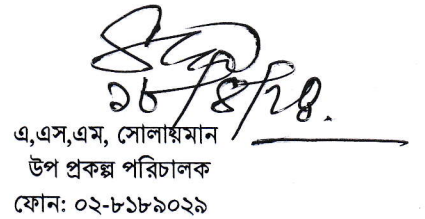 ১৮/৪/২৪.
এ,এস,এম, সোলায়মান
উপ প্রকল্প পরিচালক
ফোন: ০২-৮১৮৯০২৯